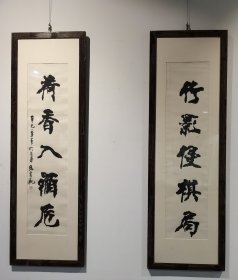 竹影侵棋局
荷香入酒卮